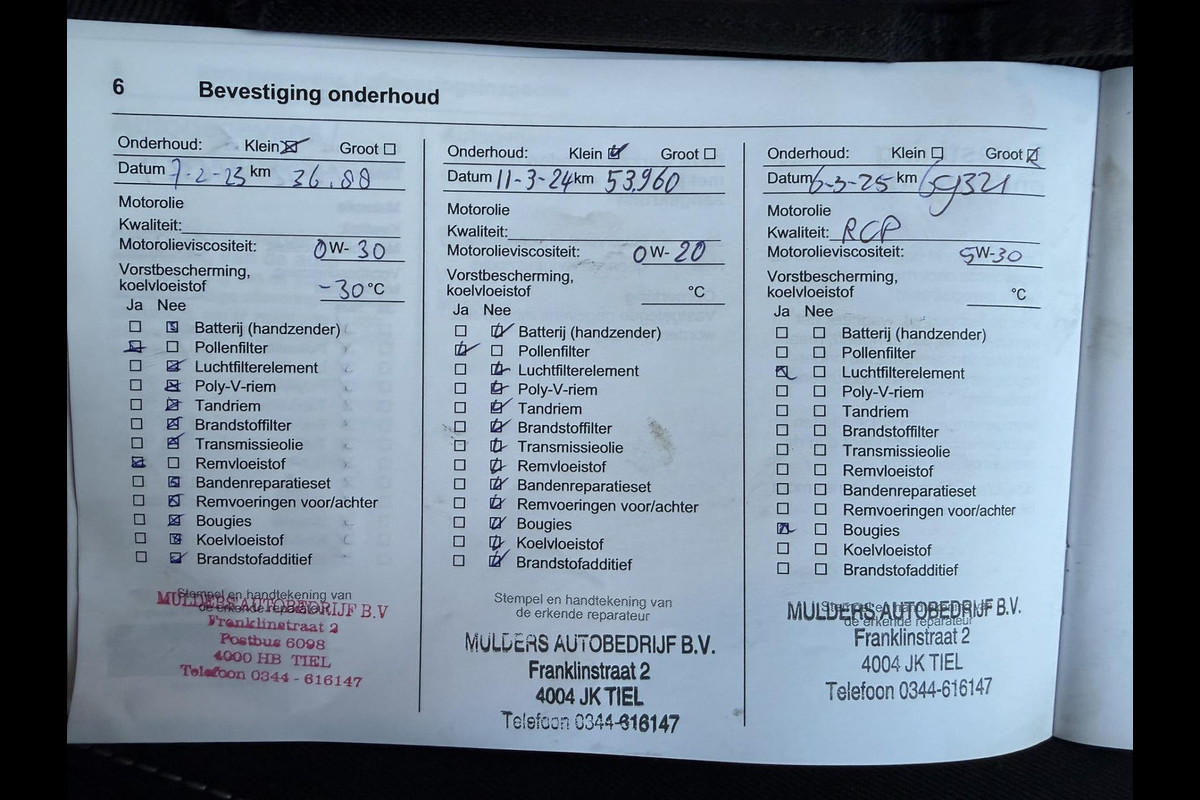 6 Bevestiging onderhoud
Onderhoud: Klein ☒ Groot ☐
Datum 7-2-23 km 36.88
Motorolie
Kwaliteit:
Motorolieviscositeit: 0W-30
Vorstbescherming,
koelvloeistof -30°C
Ja Nee
☐ ☒ Batterij (handzender)
☒ ☐ Pollenfilter
☐ ☒ Luchtfilterelement
☐ ☒ Poly-V-riem
☐ ☒ Tandriem
☐ ☒ Brandstoffilter
☐ ☒ Transmissieolie
☒ ☐ Remvloeistof
☐ ☒ Bandenreparatieset
☐ ☒ Remvoeringen voor/achter
☐ ☒ Bougies
☐ ☒ Koelvloeistof
☐ ☒ Brandstofadditief
Stempel en handtekening van
de erkende reparateur
MULDERS AUTOBEDRIJF B.V
Franklinstraat 2
Postbus 6098
4000 HB TIEL
Telefoon 0344 - 616147
Onderhoud: Klein ☑ Groot ☐
Datum 11-3-24 km 53.960
Motorolie
Kwaliteit:
Motorolieviscositeit: 0W-20
Vorstbescherming,
koelvloeistof °C
Ja Nee
☐ ☑ Batterij (handzender)
☑ ☐ Pollenfilter
☐ ☑ Luchtfilterelement
☐ ☑ Poly-V-riem
☐ ☑ Tandriem
☐ ☑ Brandstoffilter
☐ ☑ Transmissieolie
☐ ☑ Remvloeistof
☐ ☑ Bandenreparatieset
☐ ☑ Remvoeringen voor/achter
☐ ☑ Bougies
☐ ☑ Koelvloeistof
☐ ☑ Brandstofadditief
Stempel en handtekening van
de erkende reparateur
MULDERS AUTOBEDRIJF B.V.
Franklinstraat 2
4004 JK TIEL
Telefoon 0344-616147
Onderhoud: Klein ☐ Groot ☑
Datum 6-3-25 km 69321
Motorolie
Kwaliteit: RCP
Motorolieviscositeit: 5W-30
Vorstbescherming,
koelvloeistof °C
Ja Nee
☐ ☐ Batterij (handzender)
☐ ☐ Pollenfilter
☒ ☐ Luchtfilterelement
☐ ☐ Poly-V-riem
☐ ☐ Tandriem
☐ ☐ Brandstoffilter
☐ ☐ Transmissieolie
☐ ☐ Remvloeistof
☐ ☐ Bandenreparatieset
☐ ☐ Remvoeringen voor/achter
☒ ☐ Bougies
☐ ☐ Koelvloeistof
☐ ☐ Brandstofadditief
Stempel en handtekening van
de erkende reparateur
MULDERS AUTOBEDRIJF B.V.
Franklinstraat 2
4004 JK TIEL
Telefoon 0344-616147